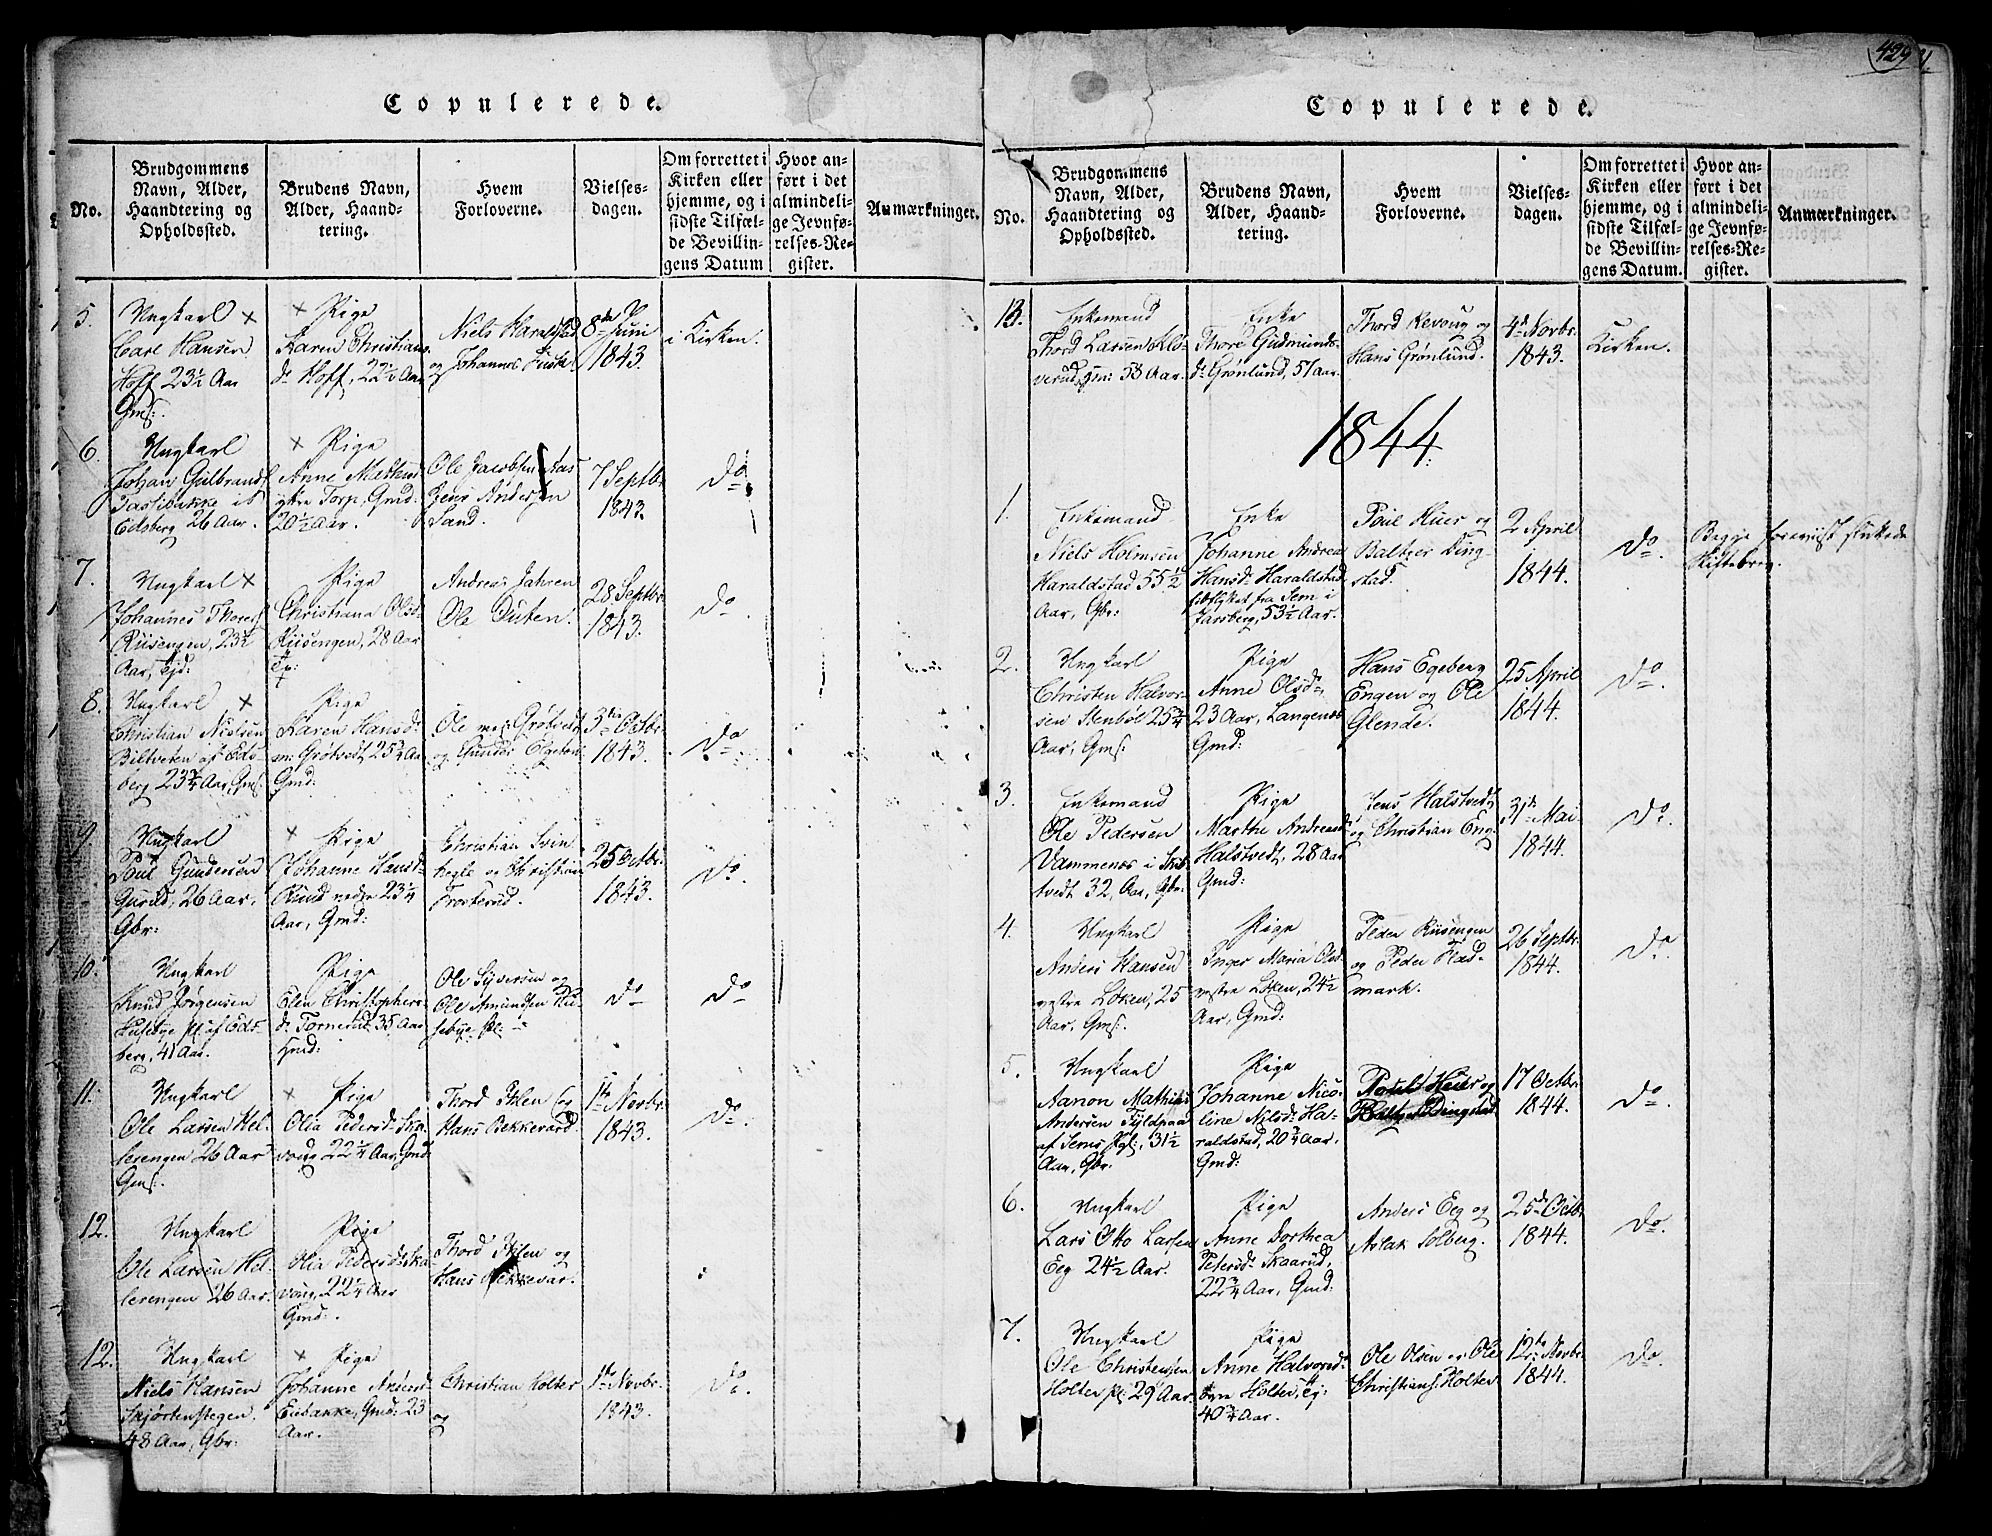 Copulerede.
No.
Brudgommens
Navn, Alder,
Haandtering og
Opholdssted.
Brudens Navn,
Alder, Haand-
tering.
Hvem
Forloverne.
Vielses-
dagen.
Om forrettet i
Kirken eller
hjemme, og i
sidste Tilfæl-
de Bevillin-
gens Datum
Hvor an-
ført i det
almindeli-
ge Jevnfø-
relses-Re-
gister.
Anmærkninger.
5.
Ungkarl ×
Carl Hansen
Hoff 23½ Aar
Gms:.
× Pige
Karen Christians
d: Hoff, 22½ Aar
Niels Haralstad
og Johannes
8de Juni
1843.
i Kirken.
6.
Ungkarl
Johan Gulbrands
i
Edsberg 26 Aar.
× Pige
Anne Mathea
Torp, Gmd:
20½ Aar.
Ole Jacobsen Aas
Jens Andersen
Sand.
7 Septbr
1843.
Do
7.
Ungkarl ×
Johannes Thores
Riisengen, 23½
Aar, Ejd:
Pige
Christiana Olsd:
Riisengen, 28 Aar
Andreas Jahren
Ole Duten.
28 Septbr
1843.
Do.
8.
Ungkarl ×
Christian Nielsen
Biltveten af Eds-
berg 23¾ Aar, Gms:
Pige
Karen Hansd:
Grøtvedt 25¾ Aar
Gmd:
Ole Grøtvedt
og Gunder
3die Octbr.
1843.
Do.
9.
Ungkarl
Poul Gundersen
Gurud, 26 Aar,
Gbr:
× Pige
Johanne Hansd:
Ruud nedre 23¼
Aar, Gmd:
Christian Svin-
og Christian
Froskerud.
25 Octbr.
1843.
Do.
10.
Ungkarl
Knud Jørgensen
Husebye pl: af Eds-
berg, 41 Aar.
Pige
Elen Christophers-
d: Tornerud, 35 Aar
Ole Syversen og
Ole Amundsen Hu-
sebye pl:
Do
Do
11.
Ungkarl
Ole Larsen Hel-
lerengen 26 Aar
Gms:
× Pige
Olia Pedersd: Ska-
voug 22¼ Aar, Gmd:
Thord Ihlen og
Hans Bekkevard.
1te Novbr.
1843.
Do.
12.
Ungkarl
Ole Larsen Hel-
lerengen 26 Aar.
Pige
Olia Pedersd: Ska-
voug, 22¼ Aar
Gmd:.
Thord Ihlen og
Hans Bekkevar.
12.
Ungkarl
Niels Hansen
Skjortenstegen.
48 Aar, Gbr:
× Pige
Johanne Andersd:
Eebakke, Gmd: 23
Aar.
Christian Holter
og
1te Novbr.
1843.
Do.
429
Copulerede.
No.
Brudgommens
Navn, Alder,
Haandtering og
Opholdssted.
Brudens Navn,
Alder, Haand-
tering.
Hvem
Forloverne.
Vielses-
dagen.
Om forrettet i
Kirken eller
hjemme, og i
sidste Tilfæl-
de Bevillin-
gens Datum.
Hvor an-
ført i det
almindeli-
ge Jevnfø-
relses-Re-
gister.
Anmærkninger.
13.
Enkemand
Thord Larsen Klo-
verud, 58 Aar.
Enke
Thore Gudmunds-
d: Grønlund, 51 aar.
Thord Revoug og
Hans Grønlund.
4de Novbr.
1843.
Kirken.
1844.
1.
Enkemand
Niels Holmsen
Haraldstad 55½
Aar, Gbr:
Enke
Johanne Andrea
Hansd: Haraldstad
fra Sem i
Jarsberg, 53½ Aar.
Poul Huer og
Baltzer Ding-
stad.
2 April
1844.
Do.
Begge foreviist
Skiftebrev.
2.
Ungkarl
Christen Halvor-
sen Stenbøl 25¾
Aar, Gms:
Pige
Anne Olsd:,
23 Aar, Langenæs
Gmd:
Hans Egeberg
Engen og Ole
Glende.
25 April
1844.
Do.
3.
Enkemand
Ole Pedersen
Vammenæs i
32, Aar, Gbr:
Pige
Marthe Andreasd:
Halstvedt, 28 Aar
Gmd:
Jens Halstvedt
og Christian Eng.
31te Mai
1844.
Do.
4.
Ungkarl
Anders Hansen
vestre Løken, 25
Aar, Gms:.
Pige
Inger Maria Olsd:
vestre Løken, 24½
Aar, Gmd:
Peder Riisengen
og Peder Flad-
mark.
26 Septbr.
1844.
Do.
5.
Ungkarl
Aanon Mathias
Andersen Fyldpaa
af Sems Pgl:, 31½
Aar, Gbr.
Pige
Johanne Nico-
line Nilsd: Ha-
raldstad, 20¾ Aar.
Gmd:
Poul Huer og
Baltzer Dingstad
17 Octbr.
1844.
Do.
6.
Ungkarl
Lars Otto Larsen
Eeg 24½ Aar.
Pige
Anne Dorthea
Petersd: Skaarud,
22¾ Aar, Gmd:
Anders Eeg og
Aslak Solberg.
25de Octbr.
1844.
Do.
7.
Ungkarl
Ole Christensen
Holter pl: 29 Aar
Pige
Anne Halvorsd:
Holter, Ej:
40¾ Aar.
Ole Olsen og Ole
Christians: Holter
12te Novbr.
1844.
Do.